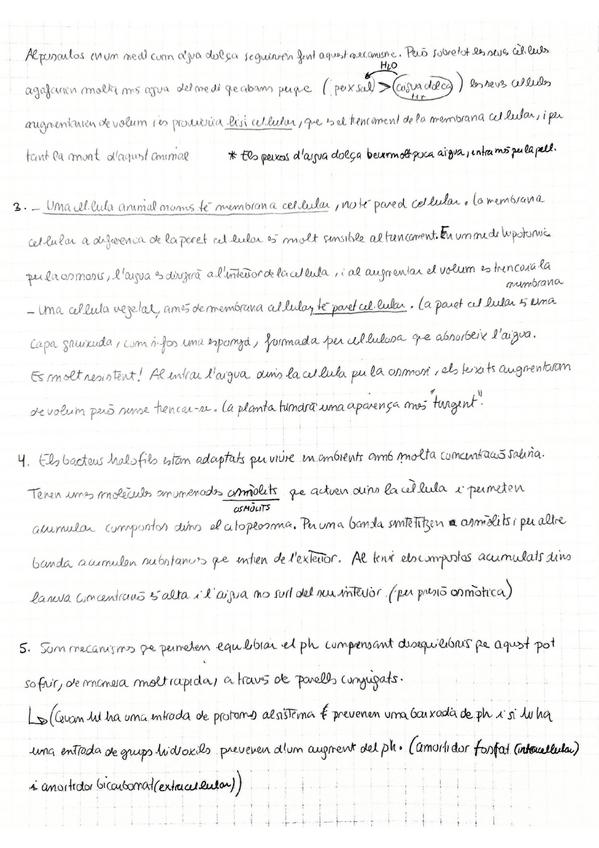 Al posarlos en un medi com aigua dolça seguirien fent aquest mecanisme. Però sobretot les seves cèl.lules
H₂O
agafarien molta més aigua del medi que abans perquè (peix sal > aigua dolça) les seves cel.lules
augmentarien de volum i es produiria lisi cel.lular, que és el trencament de la membrana cel.lular, i per
tant la mort d'aquest animal * Els peixos d'aigua dolça beuen molt poca aigua, entra més per la pell.
3. - Una cel.lula animal només té membrana cel.lular, no té pared cel.lular. La membrana
cel.lular a diferencia de la paret cel.lular és molt sensible al trencament. En un medi hipotonic
per la osmosis, l'aigua es dirigirà a l'interior de la cel.lula, i al augmentar el volum es trencarà la
membrana
- Una cel.lula vegetal, amés de membrana cel.lular, té paret cel.lular. La paret cel.lular és una
capa gruixuda, com si fos una esponja, formada per cel.lulosa que absorbeix l'aigua.
Es molt resistent! Al entrar l'aigua dins la cel.lula per la osmosi, els teixits augmentaran
de volum però sense trencar-se. La planta tindrà una aparença més "turgent".
4. Els bacteus halofils estan adaptats per viure en ambients amb molta concentració salina.
Tenen unes molècules anomenades osmòlits que actuen dins la cèl.lula i permeten
OSMÒLITS
acumular compostos dins el citoplasma. Per una banda sintetitzen osmòlits i per altre
banda acumulen substancies que entren de l'exterior. Al tenir els compostos acumulats dins
la seva concentració és alta i l'aigua no surt del seu interior. (per presió osmòtica)
5. Son mecanismes que permeten equilibrar el ph compensant desequilibris que aquest pot
sofrir, de manera molt rapida, a través de parells conjugats.
↳ (Quan hi ha una entrada de protons al sistema prevenen una baixada de ph i si hi ha
una entrada de grups hidroxils prevenen d'un augment del ph. (amortidor fosfat (intracel.lular)
i amortidor bicarbonat (extracel.lular))